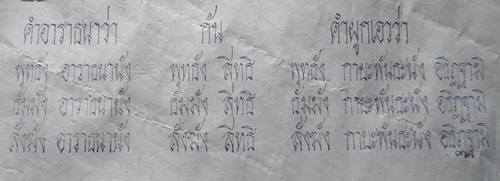 คำอาราธนาว่า กัน คำผูกเอวว่า
พุทธัง อาราธนานัง พุทธัง สิทธิ พุทธัง กายะพันธะนัง อธิฏฐามิ
ธัมมัง อาราธนานัง ธัมมัง สิทธิ ธัมมัง กายะพันธะนัง อธิฏฐามิ
สังฆัง อาราธนานัง สังฆัง สิทธิ สังฆัง กายะพันธะนัง อธิฏฐามิ